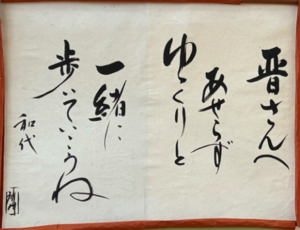 晋さんへ
あせらず
ゆっくりと
一緒に
歩いていこうね
和代